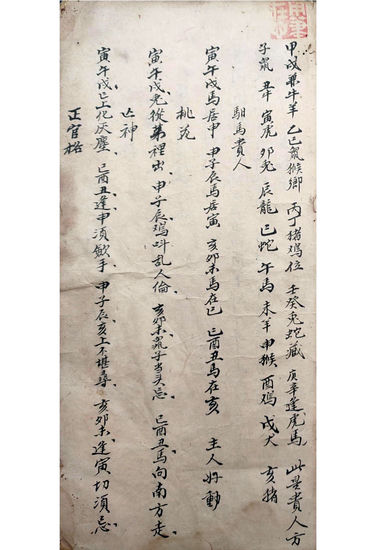 甲戊兼牛羊 乙己鼠猴鄉 丙丁猪鸡位 壬癸兔蛇藏 庚辛逢虎馬 此是貴人方
子鼠 丑牛 寅虎 卯兔 辰龍 巳蛇 午馬 未羊 申猴 酉鸡 戌犬 亥猪
馬貴人
寅午戌馬居申 申子辰馬居寅 亥卯未馬在巳 巳酉丑馬在亥 主人好動
桃花
寅午戌兔從茅裡出、申子辰鸡叫乱人倫、亥卯未鼠子当头忌、巳酉丑馬向南方走、
亡神
寅午戌巳上化灰塵、巳酉丑逢申須歛手、申子辰亥上不堪尋、亥卯未逢寅切須忌、
正官格